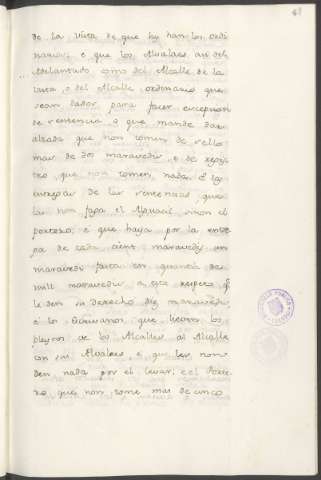 de la vista de que hy han los ordi
narios; e que los Alcalles asi del
Adelantado como del Alcalle de la
, o del Alcalle ordinario que
sean dados para facer execucion
de sentencia o que mande dar
alzada que non tomen de sello
mas de dos maravedis, e de regis
tro que non tomen nada. E la
entregas de las sentencias que
las non faga el Alguacil sinon el
portero; e que haya por la entre
ga de cada cient maravedis un
maravedi fasta en quantia de
mill maravedis a este respeto q
le den su derecho diez maravedis
e los Escrivanos que lieven los
pleytos de los Alcalles al Alcalle
con sus Alcalles, e que les non
den nada por el levar; e el Porte
ro que non tome mas de cinco